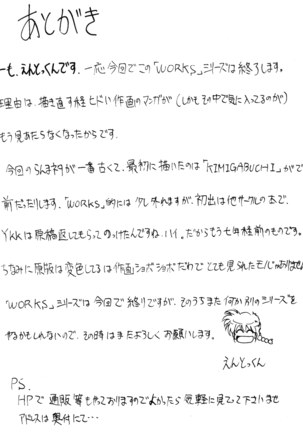 あとがき
ーも、えんどっくんです。一応今回でこの「WORKS」シリーズは終了します。
理由は、描き直す程ヒドい作画のマンガが(しかもその中で気に入ってるのが)
もう見あたらなくなったからです。
今回のらんまネタが一番古くて、最初に描いたのは「KIMIGABUCHI」がで
前だったりします。「WORKS」的には少し外れますが、初出は他サークルの本で、
YKKは原稿返してもらってのっけたんですね、ハイ。だからもう七年程前のものです。
ちなみに原版は変色してるは作画ショボショボだわでとても見られたモノじゃありませ
「WORKS」シリーズは今回で終りですが、そのうちまた何か別のシリーズを
やるかもしれないので、その時はまたよろしくお願いします。
えんどっくん
PS.
HPで通販等もやっておりますのでよかったら気軽に見てって下さいませ
アドレスは奥付にて…